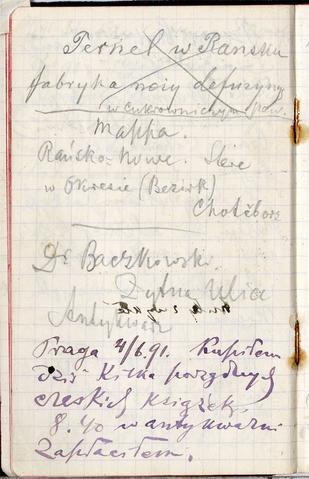 Pernel w Rańsku
fabryka noży defuzyjny
w cukrowniczym pow.
Mappa.
Rańsko-Nowe. Stere
w Okresie (Bezirk)
Chotěborz
Dr Baczkowski
Żytna Ulica
Antykwarz
Praga 4/6.91. Kupiłem
dziś kilka porządnych
czeskich książek.
8.40 w antykwarni
zapłaciłem.